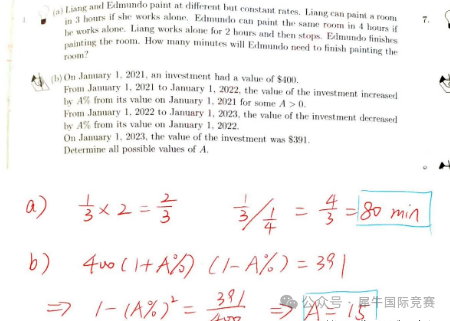 (a) Liang and Edmundo paint at different but constant rates. Liang can paint a room
in 3 hours if she works alone. Edmundo can paint the same room in 4 hours if
he works alone. Liang works alone for 2 hours and then stops. Edmundo finishes
painting the room. How many minutes will Edmundo need to finish painting the
room?
7.
(b) On January 1, 2021, an investment had a value of $400.
From January 1, 2021 to January 1, 2022, the value of the investment increased
by A% from its value on January 1, 2021 for some A > 0.
From January 1, 2022 to January 1, 2023, the value of the investment decreased
by A% from its value on January 1, 2022.
On January 1, 2023, the value of the investment was $391.
Determine all possible values of A.
a) 1/3 × 2 = 2/3 1/3 / 1/4 = 4/3 = 80 min
b) 400 (1+A%) (1-A%) = 391
⇒ 1-(A%)² = 391/400 ⇒ A = 15
公众号 · 犀牛国际竞赛